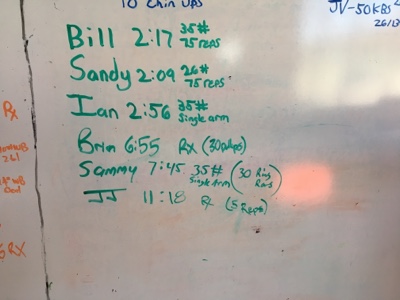 10 Chin Ups
JV-50KBS
26/13
Bill 2:17 35# 75 reps
Sandy 2:09 26# 75 reps
Ian 2:56 35# Single arm
Brian 6:55 Rx (30 pullups)
Sammy 7:45 35# Single Arm (30 Ring Rows)
JJ 11:18 Rx (5 Reps)
Rx
26#
RX